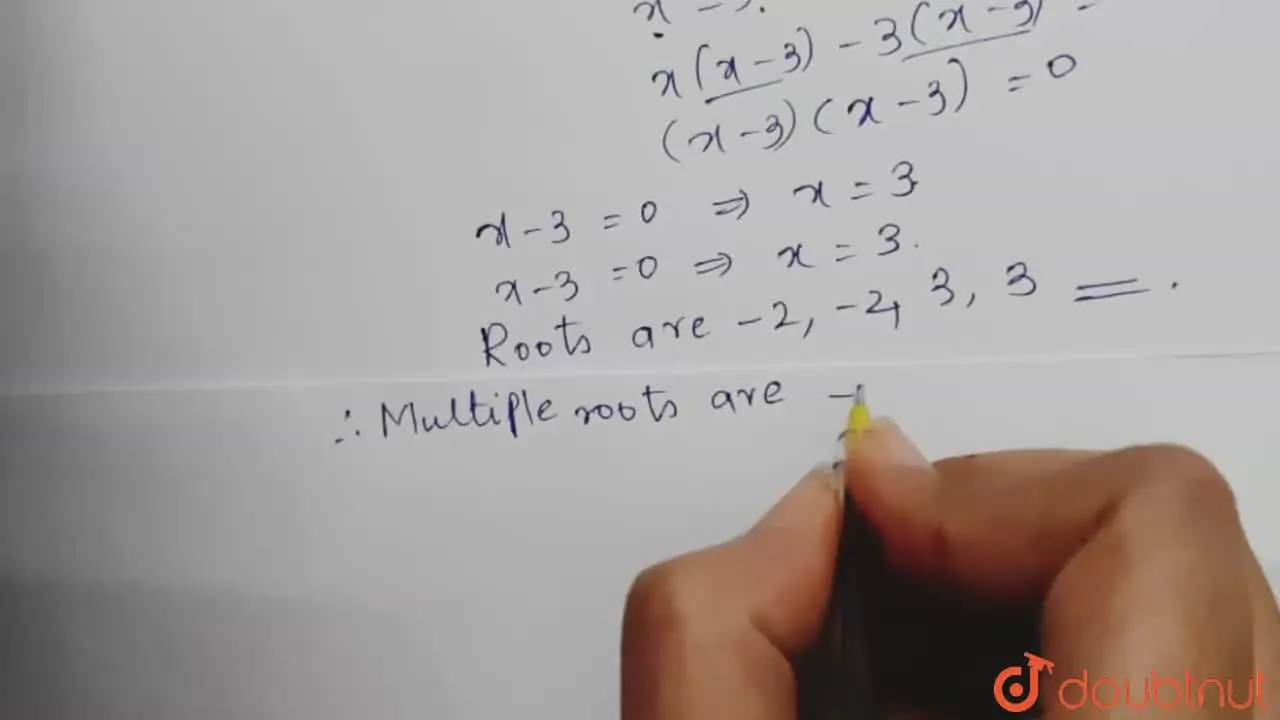 x(x-3) -3(x-3) =
(x-3)(x-3) = 0
x-3 = 0 ⇒ x = 3
x-3 = 0 ⇒ x = 3.
Roots are -2, -2, 3, 3 =.
∴ Multiple roots are -
doubtnut